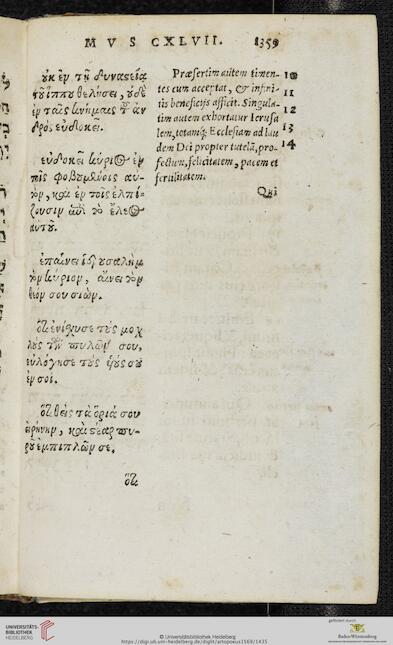 MVS CXLVII. 1359
οὐκ ἐν τῇ δυναστείᾳ
τοῦ ἵππου θελήσει, οὐδὲ
ἐν ταῖς κνήμαις τοῦ ἀν
δρὸς εὐδοκεῖ.
εὐδοκεῖ κύριος ἐν
τοῖς φοβουμένοις αὐ-
τὸν, καὶ ἐν τοῖς ἐλπί-
ζουσιν ἐπὶ τὸ ἔλεος
αὐτοῦ.
ἐπαίνει ἱερουσαλὴμ
τὸν κύριον, αἴνει τὸν
θεόν σου σιὼν.
ὅτι ἐνίσχυσε τοὺς μοχ
λοὺς τῶν πυλῶν σου,
εὐλόγησε τοὺς υἱούς σου
ἐν σοί.
ὁ θεὶς τὰ ὅριά σου
εἰρήνην, καὶ στέαρ πυ-
ροῦ ἐμπιπλῶν σε.
ὁ
Præsertim autem timen- 10
tes eum acceptat, & infini- 11
tis beneficijs afficit. Singula- 12
tim autem exhortatur Ierusa
lem, totamq; Ecclesiam ad lau 13
dem Dei propter tutelā, pro- 14
fectum, felicitatem, pacem et
fertilitatem.
Qui
UNIVERSITÄTS-
BIBLIOTHEK
HEIDELBERG
© Universitätsbibliothek Heidelberg
https://digi.ub.uni-heidelberg.de/diglit/artopoeus1569/1435
gefördert durch
Baden-Württemberg